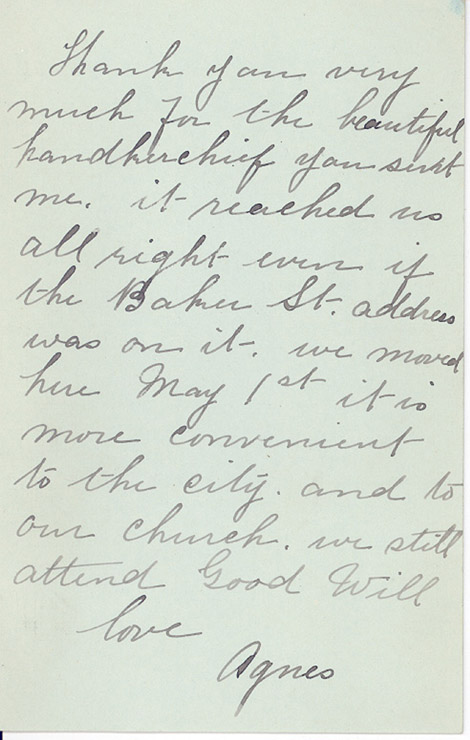 Thank you very
much for the beautiful
handkerchief you sent
me. it reached us
all right even if
the Baker St. address
was on it. we moved
here May 1st it is
more convenient
to the city. and to
our church. we still
attend Good Will
love
Agnes